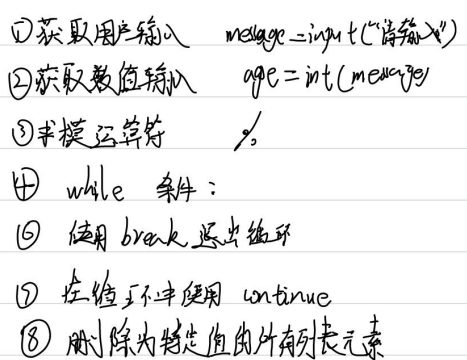 ①获取用户输入 message=input("请输入")
②获取数值输入 age=int(message)
③求模运算符 %
④ while 条件:
⑥ 使用break退出循环
⑦ 在循环中使用 continue
⑧ 删除为特定值的所有列表元素